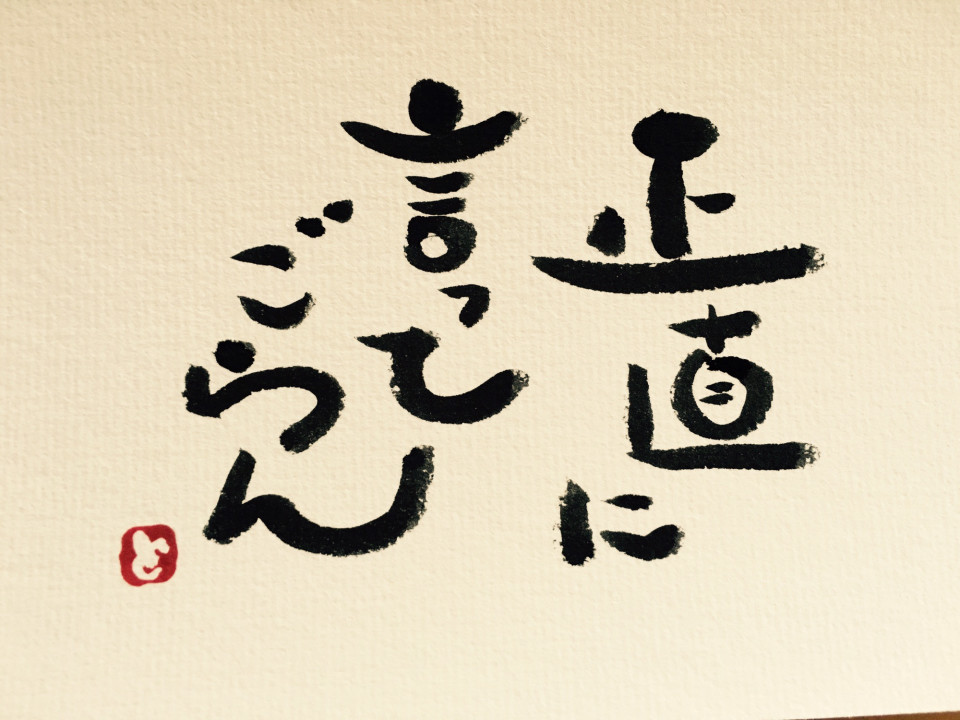 正直に
言って
ごらん
と